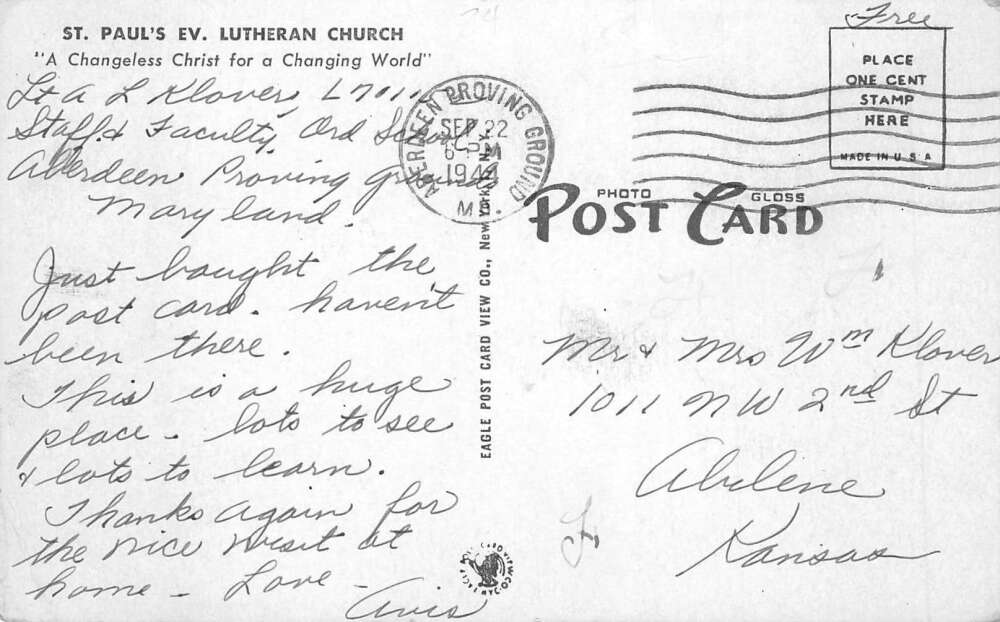 ST. PAUL'S EV. LUTHERAN CHURCH
"A Changeless Christ for a Changing World"
Lt A L Klover, L
Staff & Faculty, Ord School
Aberdeen Proving Grounds
Maryland.
Just bought the
post card. haven't
been there.
This is a huge
place - lots to see
& lots to learn.
Thanks again for
the nice visit at
home - Love -
Avis
ABERDEEN PROVING GROUND
SEP 22
1944
MD.
EAGLE POST CARD VIEW CO., New York
Free
PLACE
ONE CENT
STAMP
HERE
MADE IN U S A
PHOTO GLOSS
POST CARD
Mr & Mrs Wm Klover
1011 NW 2nd St
Abilene
Kansas